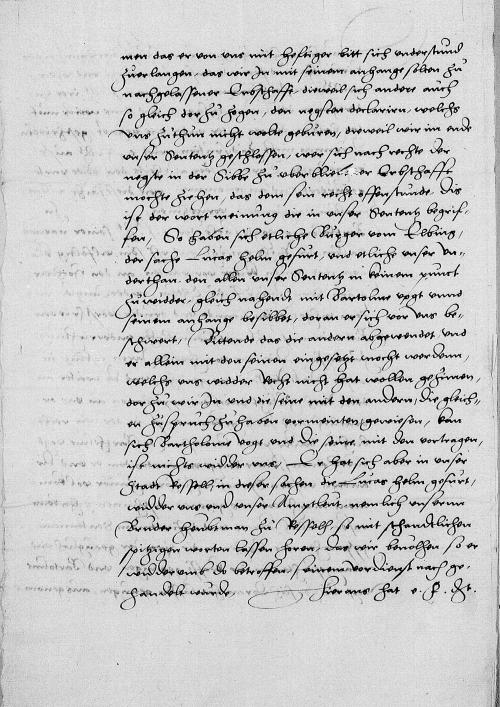 men das er von uns mit hefftiger bitt sich understund
zuerlangen, das wir In mit seinem anhange solten zu
nachgelassener Erbschafft, dieweil sich andere auch
so gleich dorzu zogen, den negsten declarirn, welchs
uns zuthun nicht wolte geburen, dieweil wir im ende
unser Sententz geschlossen, wer sich nach rechte der
negste in der Sibbe zu ubrbliebener Erbschafft
mochte ziehen, das dem sein recht offenstunde. Dis
ist der wort meinung die in unser Sententz begrif-
fen, So haben sich etliche Burger vom Elbing,
der sache Lucas helm gefurt, und etliche unser un-
derthan den allen unser Sententz in keinem punct
zuwidder, gleich nahendt mit Bartolme vogt unnd
seinem anhange besibbet, doran er sich vor uns be-
schwert, Bittende das die andern abgewendet und
er allein mit den seinen eingesetzt mocht werdenn,
welchs uns widder Recht nicht hat wollen geziemen,
dorzu wir In und die seine mit den andern, die gleich-
en zuspruch zuhaben vermeinten, gewiesen, kan
sich Bartholme vogt und die seine mit den vortragen,
ist nichts widder uns, Er hat sich aber in unser
Stadt Resssell, in dieser sachen die Lucas helm gefurt,
widder uns und unser Amptleut, nemlich unserm
Bruder haubtman zu Ressell, so mit schmehlichen
spitzigen worten lassen horen, das wir bevolhen so er
widderumb do betroffen, seinem vordienst nach ge-
handelt wurde. Hieraus hat e. f. Dt.